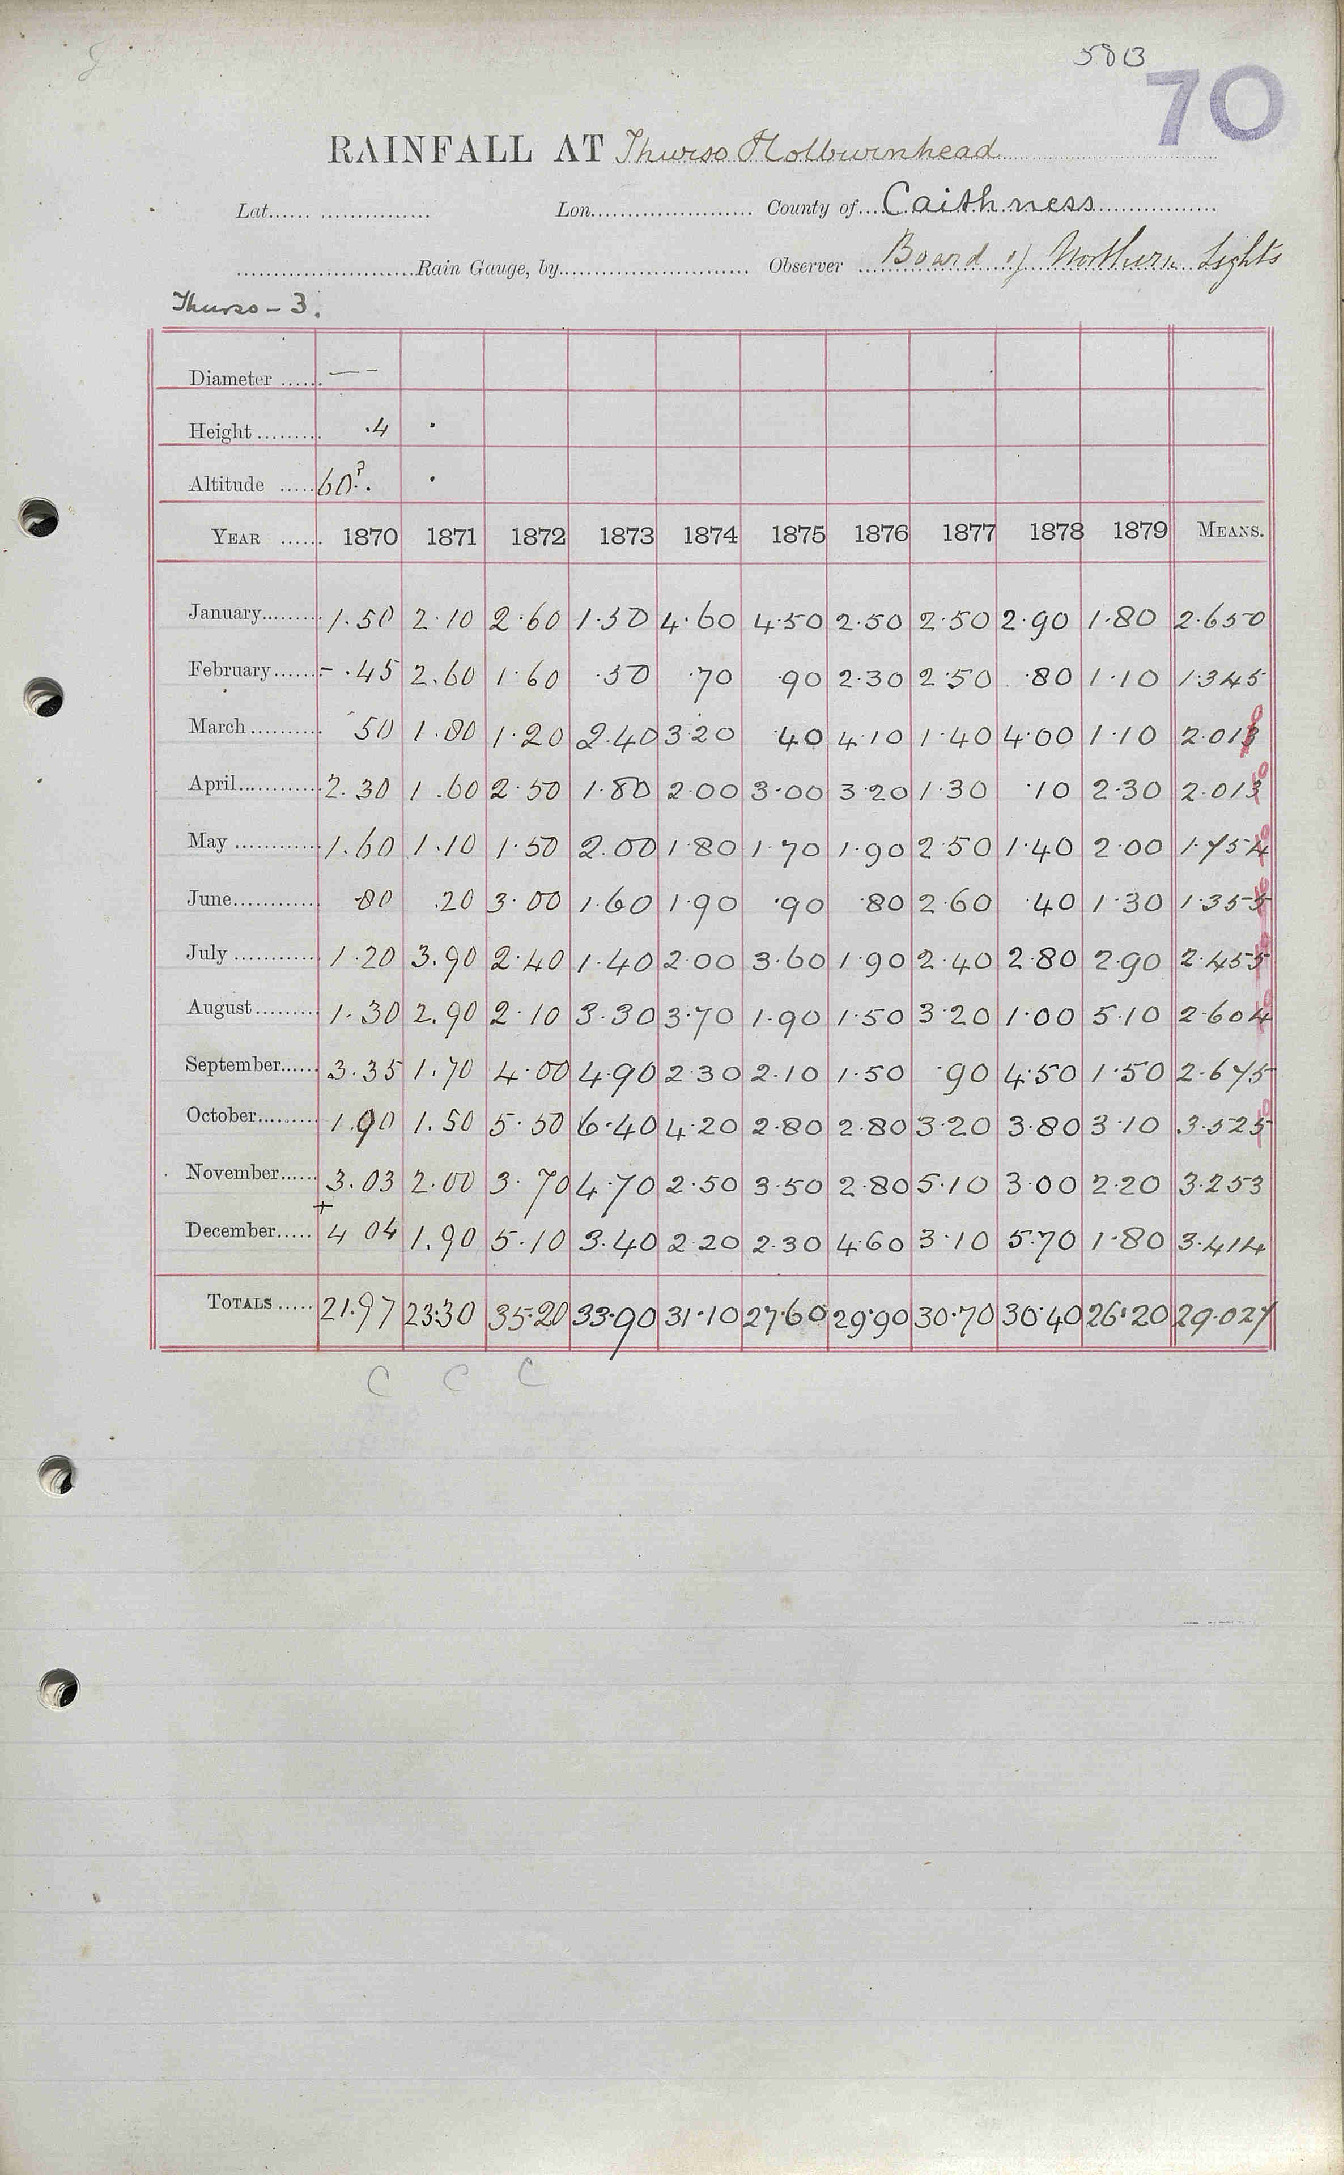 5813
70
RAINFALL AT Thurso Holburnhead
Lat. Lon. County of Caithness
Rain Gauge, by Observer Board of Northern Lights
Thurso - 3.
Diameter —
Height .4 .
Altitude 60?. .
YEAR 1870 1871 1872 1873 1874 1875 1876 1877 1878 1879 MEANS.
January 1.50 2.10 2.60 1.50 4.60 4.50 2.50 2.50 2.90 1.80 2.650
February - .45 2.60 1.60 .50 .70 .90 2.30 2.50 .80 1.10 1.345
March .50 1.80 1.20 2.40 3.20 .40 4.10 1.40 4.00 1.10 2.013 0
April 2.30 1.60 2.50 1.80 2.00 3.00 3.20 1.30 .10 2.30 2.013 0
May 1.60 1.10 1.50 2.00 1.80 1.70 1.90 2.50 1.40 2.00 1.754 0
June .80 .20 3.00 1.60 1.90 .90 .80 2.60 .40 1.30 1.355
July 1.20 3.90 2.40 1.40 2.00 3.60 1.90 2.40 2.80 2.90 2.455 0
August 1.30 2.90 2.10 3.30 3.70 1.90 1.50 3.20 1.00 5.10 2.604 0
September 3.35 1.70 4.00 4.90 2.30 2.10 1.50 .90 4.50 1.50 2.675
October 1.90 1.50 5.50 6.40 4.20 2.80 2.80 3.20 3.80 3.10 3.525 0
November 3.03 2.00 3.70 4.70 2.50 3.50 2.80 5.10 3.00 2.20 3.253
December + 4 04 1.90 5.10 3.40 2.20 2.30 4.60 3.10 5.70 1.80 3.414
TOTALS 21.97 23.30 35.20 33.90 31.10 27.60 29.90 30.70 30.40 26.20 29.027
C C C